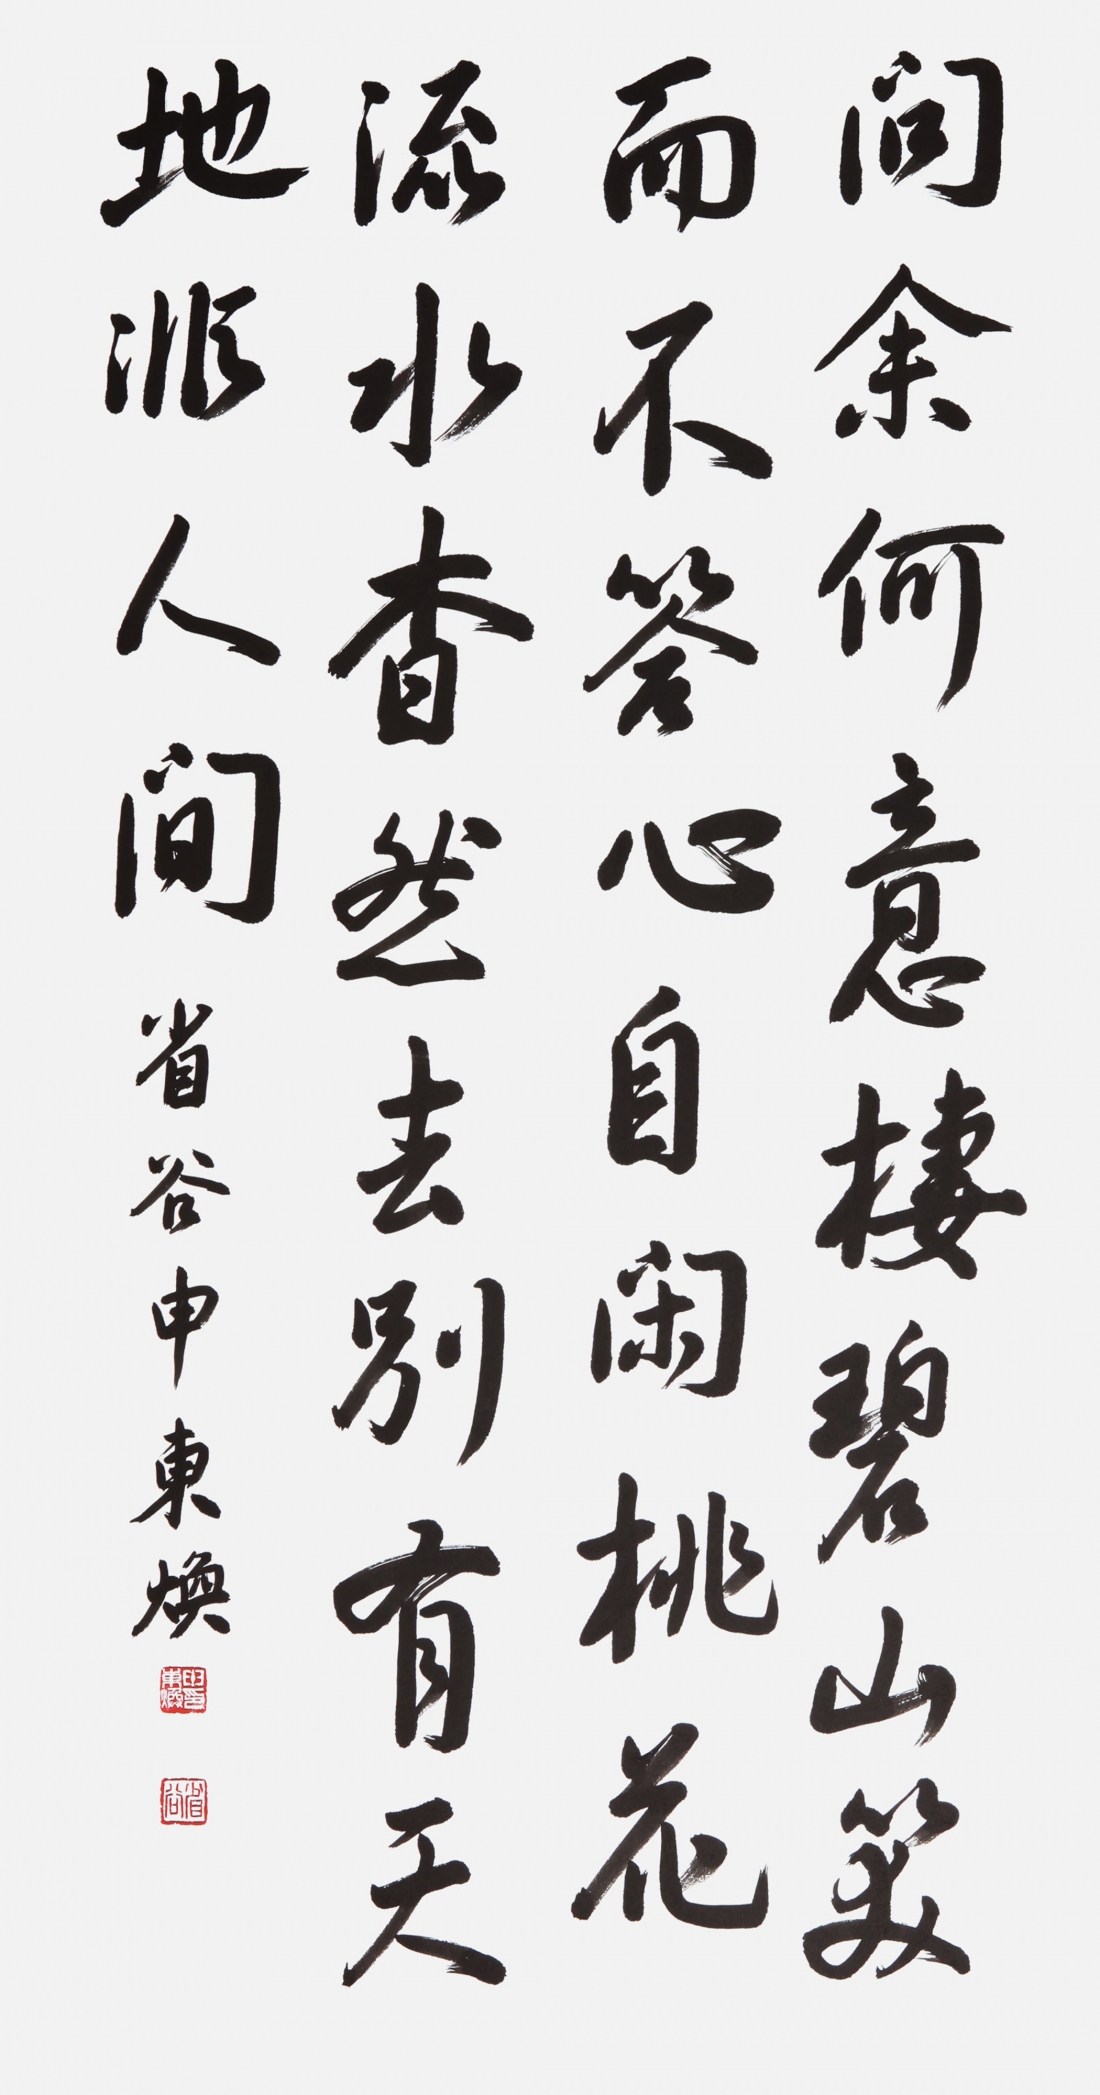 問余何意棲碧山笑
而不答心自閑桃花
流水杳然去別有天
地非人間 省谷申東煥
申東煥印
省谷